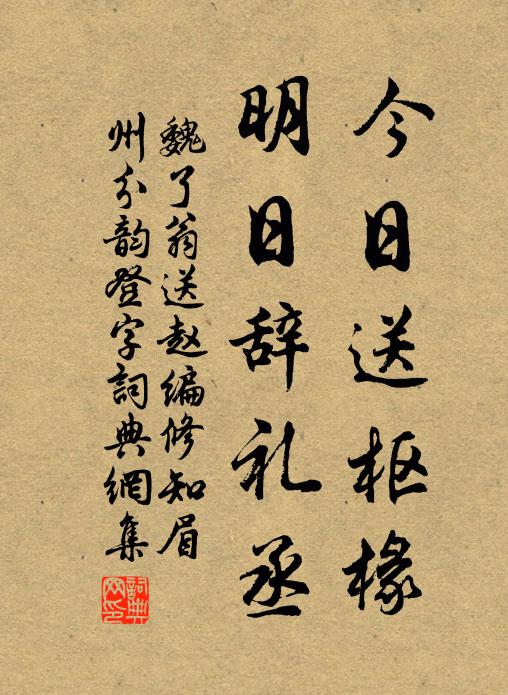 今日送枢椽
明日辞礼丞
魏了翁送赵编修知眉
州分韵登字詞典網集
詞典网印